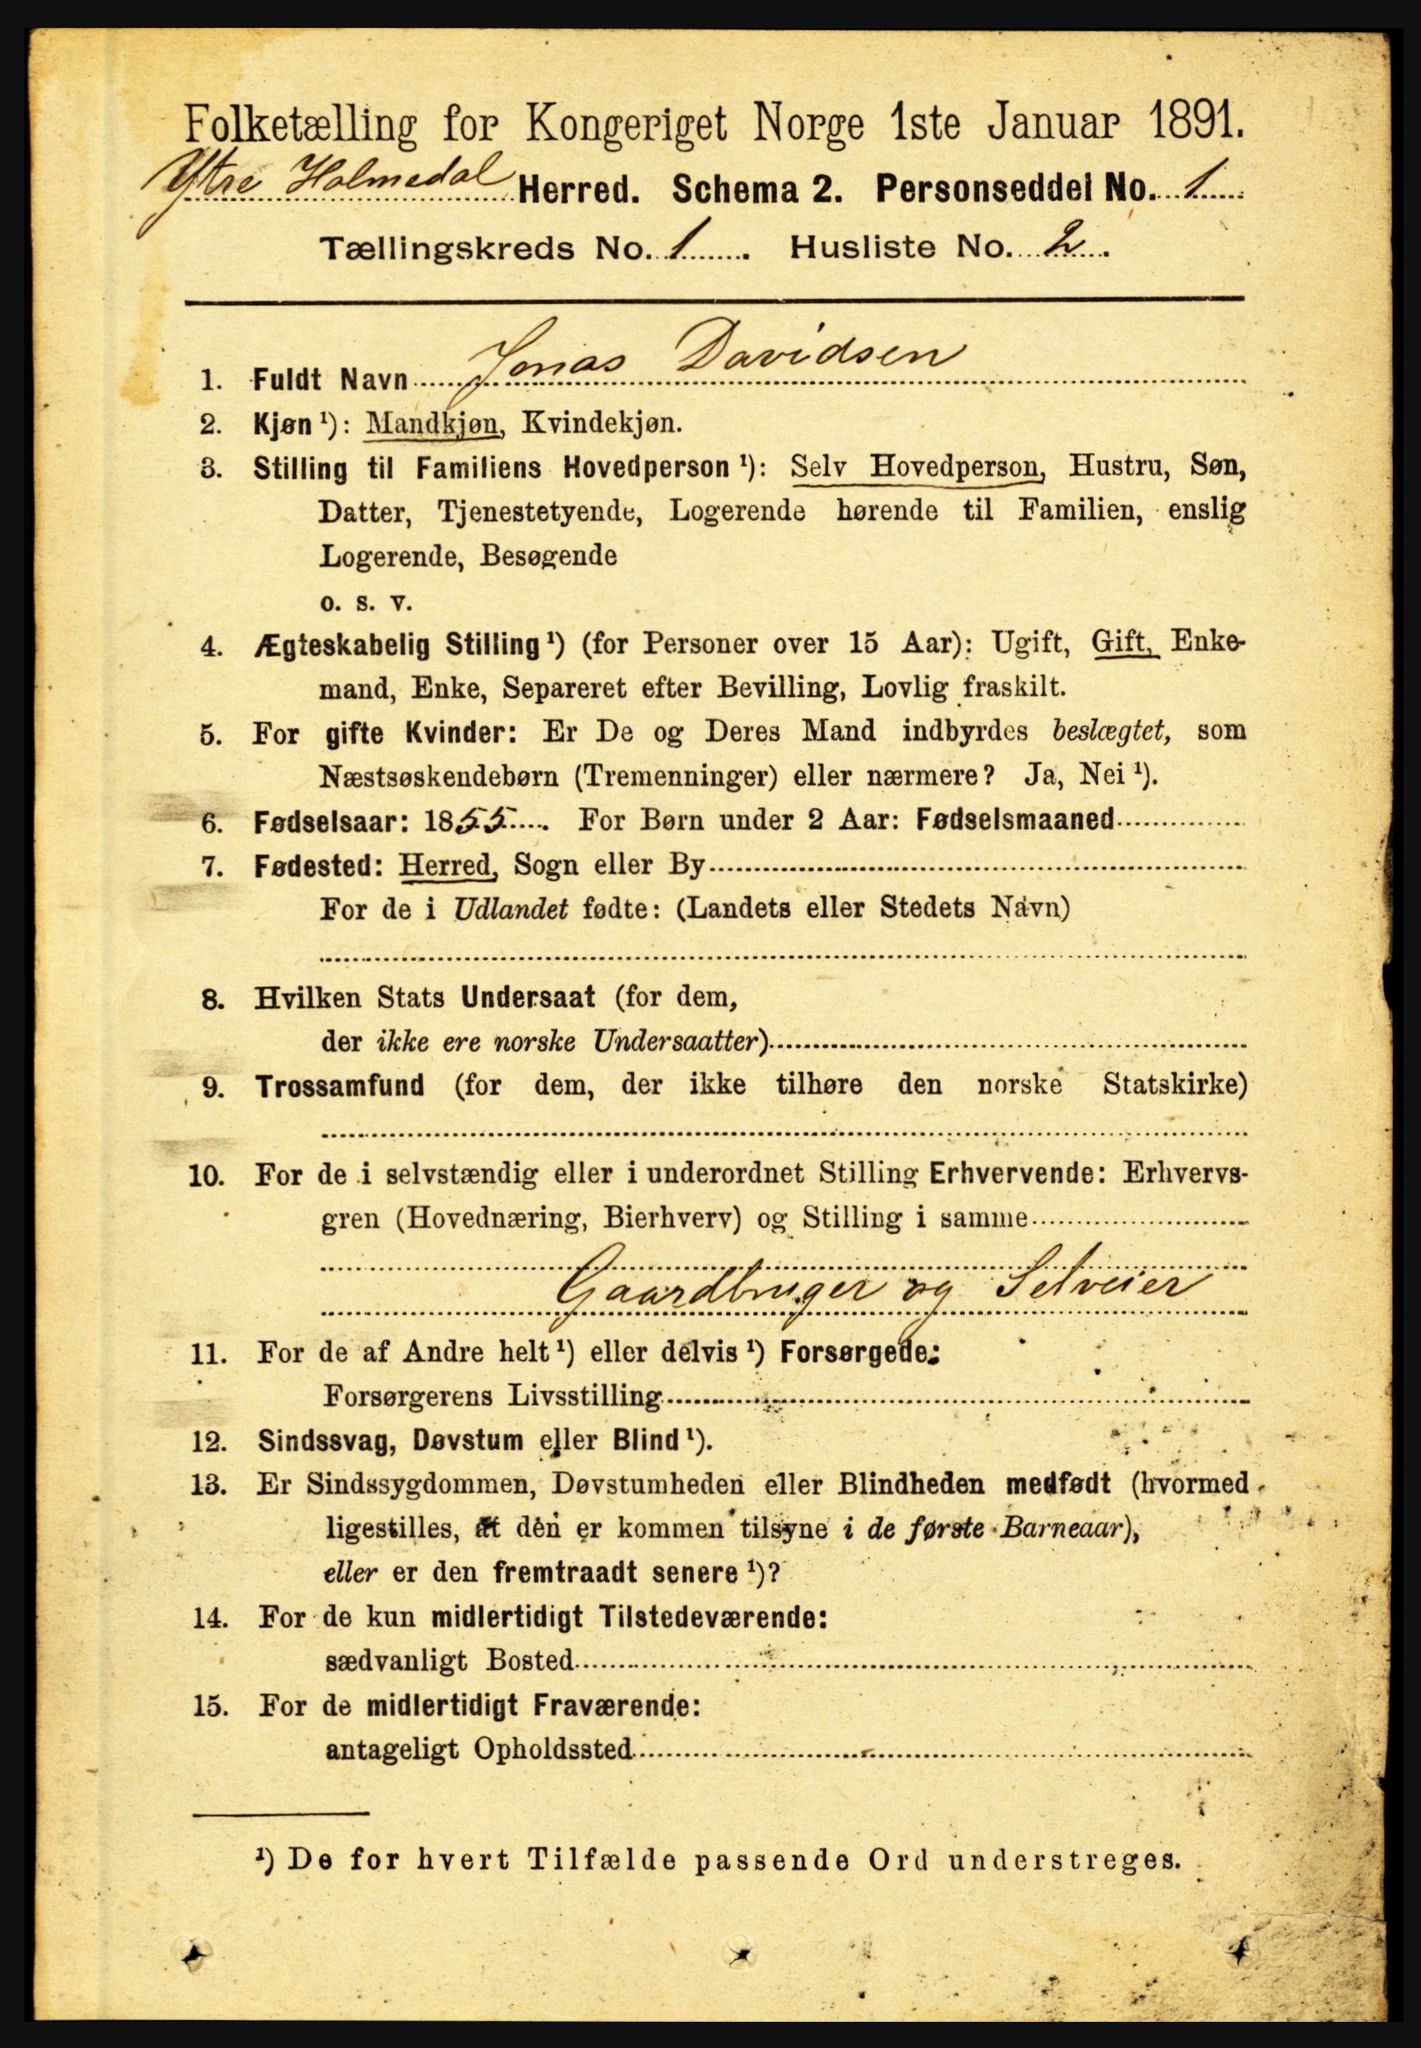 Folketælling for Kongeriget Norge 1ste Januar 1891.
Ytre Holmedal Herred. Schema 2. Personseddel No. 1
Tællingskreds No. 1. Husliste No. 2.
1. Fuldt Navn Jonas Davidsen
2. Kjøn ¹): Mandkjøn, Kvindekjøn.
3. Stilling til Familiens Hovedperson ¹): Selv Hovedperson, Hustru, Søn,
Datter, Tjenestetyende, Logerende hørende til Familien, enslig
Logerende, Besøgende
o. s. v.
4. Ægteskabelig Stilling ¹) (for Personer over 15 Aar): Ugift, Gift, Enke-
mand, Enke, Separeret efter Bevilling, Lovlig fraskilt.
5. For gifte Kvinder: Er De og Deres Mand indbyrdes beslægtet, som
Næstsøskendebørn (Tremenninger) eller nærmere? Ja, Nei ¹).
6. Fødselsaar: 1855. For Børn under 2 Aar: Fødselsmaaned
7. Fødested: Herred, Sogn eller By
For de i Udlandet fødte: (Landets eller Stedets Navn)
8. Hvilken Stats Undersaat (for dem,
der ikke ere norske Undersaatter)
9. Trossamfund (for dem, der ikke tilhøre den norske Statskirke)
10. For de i selvstændig eller i underordnet Stilling Erhvervende: Erhvervs-
gren (Hovednæring, Bierhverv) og Stilling i samme
Gaardbruger og Selveier
11. For de af Andre helt ¹) eller delvis ¹) Forsørgede:
Forsørgerens Livsstilling
12. Sindssvag, Døvstum eller Blind ¹).
13. Er Sindssygdommen, Døvstumheden eller Blindheden medfødt (hvormed
ligestilles, at den er kommen tilsyne i de første Barneaar),
eller er den fremtraadt senere ¹)?
14. For de kun midlertidigt Tilstedeværende:
sædvanligt Bosted
15. For de midlertidigt Fraværende:
antageligt Opholdssted
¹) De for hvert Tilfælde passende Ord understreges.